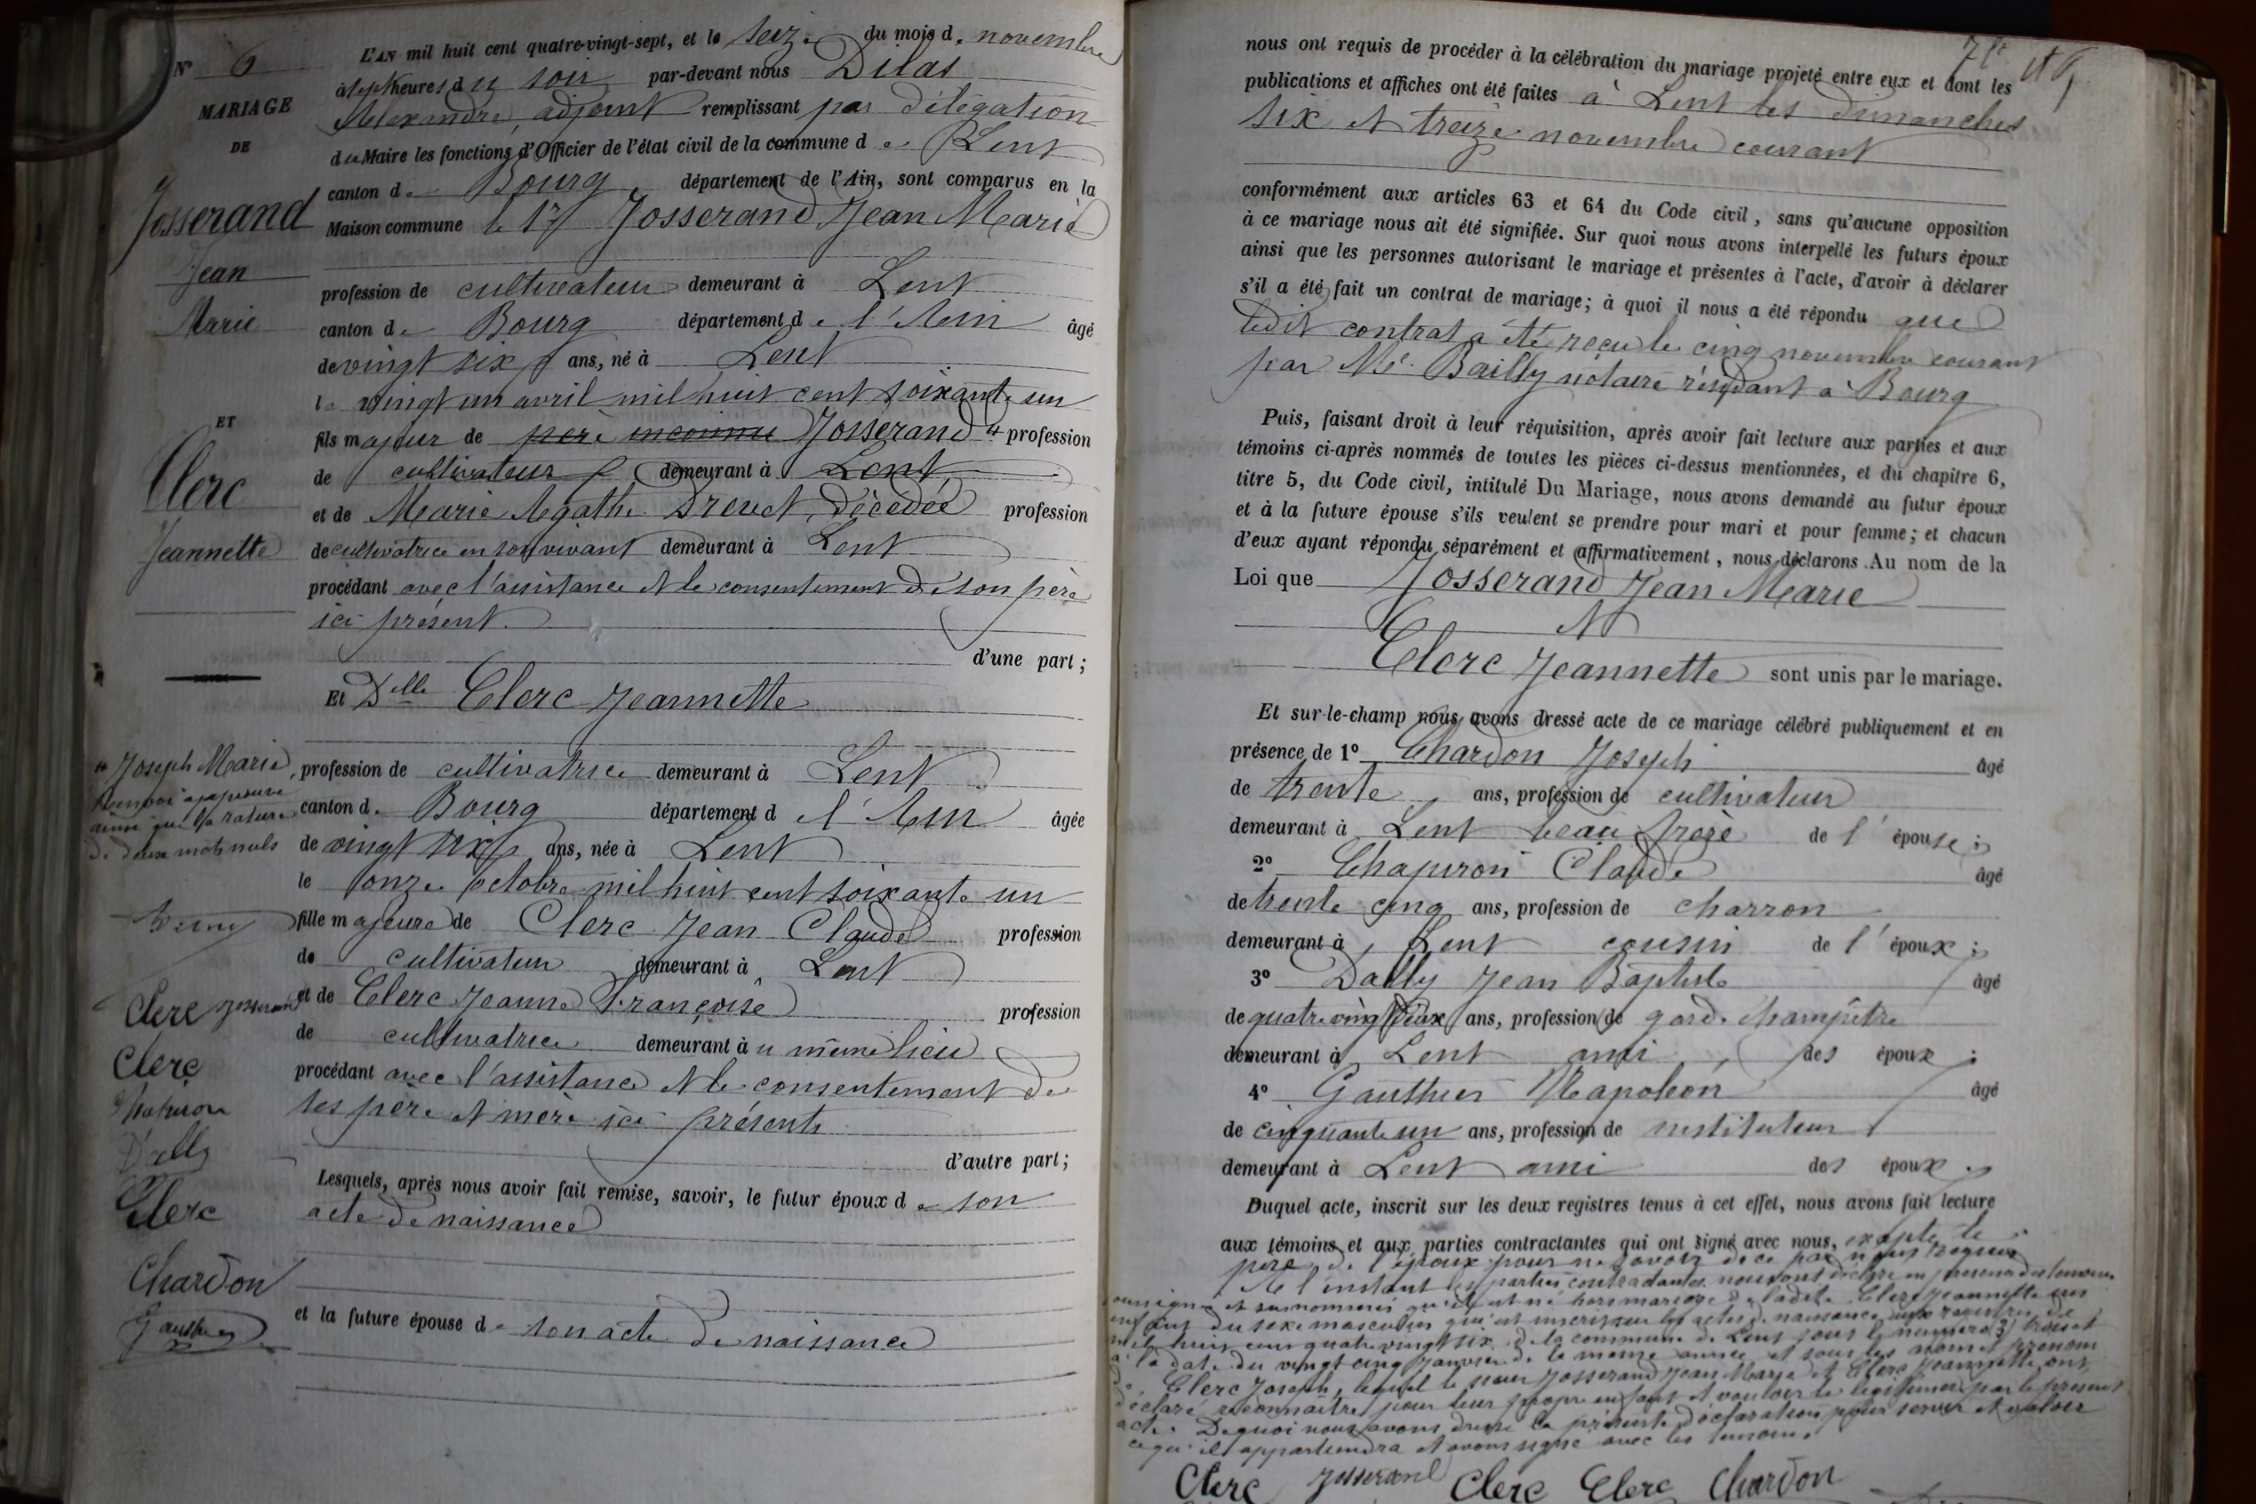 N° 6
MARIAGE
DE
Josserand
Jean
Marie
ET
Clerc
Jeannette
L'AN mil huit cent quatre-vingt-sept, et le seize du mois de novembre
à sept heures du soir par-devant nous Dilas
Alexandre, adjoint remplissant par délégation
du Maire les fonctions d'Officier de l'état civil de la commune de Lent
canton de Bourg, département de l'Ain, sont comparus en la
Maison commune le Sr Josserand Jean Marie
profession de cultivateur demeurant à Lent
canton de Bourg département de l'Ain âgé
de vingt six ans, né à Lent
le vingt un avril mil huit cent soixante un
fils majeur de père inconnu Josserand # profession
de cultivateur demeurant à Lent
et de Marie Agathe décédée profession
de cultivatrice en son vivant demeurant à Lent
procédant avec l'assistance et le consentement de son père
ici présent.
d'une part;
Et Delle Clerc Jeannette
# Joseph Marie,
Renvoi approuvé
ainsi que la rature
de deux mots nuls
profession de cultivatrice demeurant à Lent
canton de Bourg département de l'Ain âgée
de vingt six ans, née à Lent
le onze octobre mil huit cent soixante un
fille majeure de Clerc Jean Claude profession
de cultivateur demeurant à Lent
et de Clerc Jeanne Françoise profession
de cultivatrice demeurant au même lieu
procédant avec l'assistance et le consentement de
ses père et mère ici présents
d'autre part;
Lesquels, après nous avoir fait remise, savoir, le futur époux de son
acte de naissance
et la future épouse de son acte de naissance
Clerc Josserand
Clerc
Chapuron
Dally
Clerc
Chardon
Gauthier
nous ont requis de procéder à la célébration du mariage projeté entre eux et dont les
publications et affiches ont été faites à Lent les dimanches
six et treize novembre courant
conformément aux articles 63 et 64 du Code civil, sans qu'aucune opposition
à ce mariage nous ait été signifiée. Sur quoi nous avons interpellé les futurs époux
ainsi que les personnes autorisant le mariage et présentes à l'acte, d'avoir à déclarer
s'il a été fait un contrat de mariage; à quoi il nous a été répondu que
ledit contrat a été reçu le cinq novembre courant
par Me Bailly notaire résidant à Bourg
Puis, faisant droit à leur réquisition, après avoir fait lecture aux parties et aux
témoins ci-après nommés de toutes les pièces ci-dessus mentionnées, et du chapitre 6,
titre 5, du Code civil, intitulé Du Mariage, nous avons demandé au futur époux
et à la future épouse s'ils veulent se prendre pour mari et pour femme; et chacun
d'eux ayant répondu séparément et affirmativement, nous déclarons Au nom de la
Loi que Josserand Jean Marie
et
Clerc Jeannette sont unis par le mariage.
Et sur-le-champ nous avons dressé acte de ce mariage célébré publiquement et en
présence de 1° Chardon Joseph âgé
de trente ans, profession de cultivateur
demeurant à Lent beau frère de l'épouse;
2° Chapuron Claude âgé
de trente cinq ans, profession de charron
demeurant à Lent cousin de l'époux;
3° Dally Jean Baptiste âgé
de quatre vingt deux ans, profession de garde champêtre
demeurant à Lent ami des époux;
4° Gauthier Napoléon âgé
de cinquante un ans, profession de instituteur
demeurant à Lent ami des époux.
Duquel acte, inscrit sur les deux registres tenus à cet effet, nous avons fait lecture
aux témoins et aux parties contractantes qui ont signé avec nous, excepté le
père de l'époux pour ne savoir de ce par nous requis
A l'instant les parties contractantes nous ont déclaré en présence des témoins
soussignés et susnommés qu'il est né hors mariage de ladite Clerc Jeannette un
enfant du sexe masculin qui est inscrit sur les actes de naissance aux registres de
mil huit cent quatre vingt six de la commune de Lent sous le numéro 3 trois et
à la date du vingt cinq janvier de la même année et sous les nom et prénom
de Clerc Joseph, lequel le sieur Josserand Jean Marie et Clerc Jeannette ont
déclaré reconnaître pour leur propre enfant et vouloir le légitimer par le présent
acte. De quoi nous avons dressé la présente déclaration pour servir et valoir
ce qu'il appartiendra et avons signé avec les témoins.
Clerc Josserand Clerc Clerc Chardon